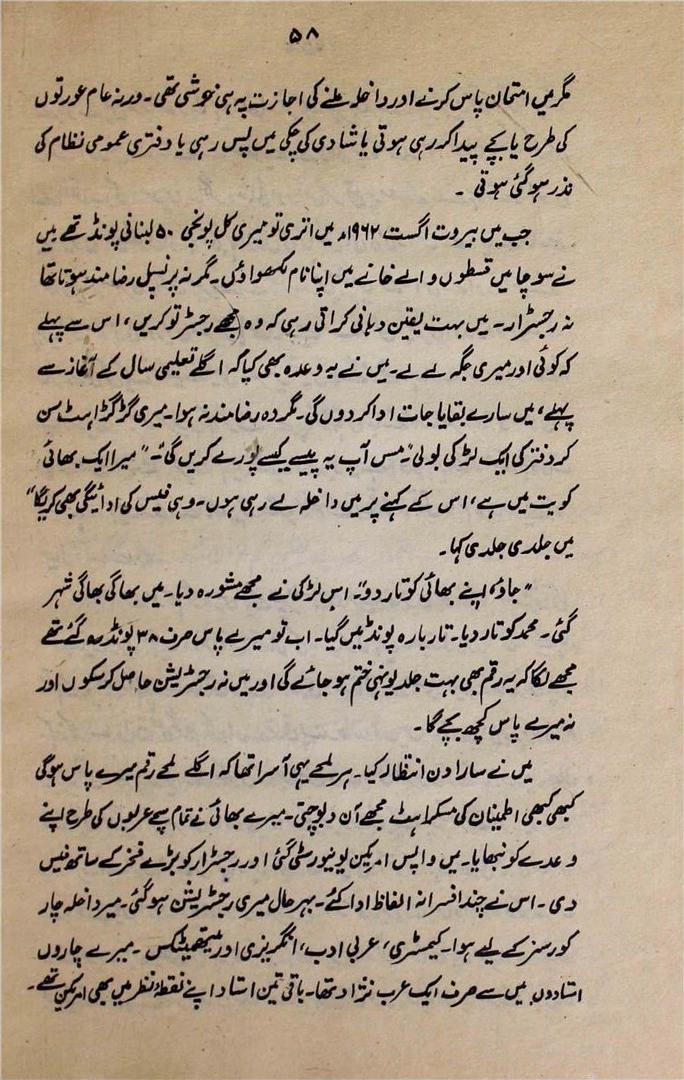 ۵۸
مگر میں امتحان پاس کرنے اور داخلہ ملنے کی اجازت پہ ہی خوش تھی۔ ورنہ عام عورتوں
کی طرح یا بچے پیدا کر رہی ہوتی یا شادی کی چکی میں پس رہی یا دفتری عمومی نظام کی
نذر ہو گئی ہوتی ۔
جب میں بیروت اگست ۱۹۶۲ء میں اتری تو میری کل پونجی ۵۰ لبنانی پونڈ تھے میں
نے سوچا میں قسطوں والے خانے میں اپنا نام لکھواؤں۔ مگر نہ پرنسپل رضامند ہوتا تھا
نہ رجسٹرار۔ میں بہت یقین دہانی کراتی رہی کہ وہ مجھے رجسٹر تو کریں، اس سے پہلے
کہ کوئی اور میری جگہ لے لے۔ میں نے یہ وعدہ بھی کیا کہ اگلے تعلیمی سال کے آغاز سے
پہلے، میں سارے بقایا جات ادا کر دوں گی۔ مگر وہ رضامند نہ ہوا۔ میری گڑگڑاہٹ سن
کر دفتر کی ایک لڑکی بولی "مس آپ یہ پیسے کیسے پورے کریں گی"۔ "میرا ایک بھائی
کویت میں ہے، اس کے کہنے پر میں داخلہ لے رہی ہوں۔ وہی فیس کی ادائیگی بھی کریگا"
میں جلدی جلدی کہا۔
"جاؤ، اپنے بھائی کو تار دو"۔ اس لڑکی نے مجھے مشورہ دیا۔ میں بھاگی بھاگی شہر
گئی۔ محمد کو تار دیا۔ تار بارہ پونڈ میں گیا۔ اب تو میرے پاس صرف ۳۸ پونڈ رہ گئے تھے
مجھے لگا کہ یہ رقم بھی بہت جلد یونہی ختم ہو جائے گی اور میں نہ رجسٹریشن حاصل کر سکوں اور
نہ میرے پاس کچھ بچے گا۔
میں نے سارا دن انتظار کیا۔ ہر لمحے یہی آسرا تھا کہ اگلے لمحے رقم میرے پاس ہو گی
کبھی کبھی اطمینان کی مسکراہٹ مجھے آن دبوچتی۔ میرے بھائی نے تمام سچے عربوں کی طرح اپنے
وعدے کو نبھایا۔ میں واپس امریکن یونیورسٹی گئی اور رجسٹرار کو بڑے فخر کے ساتھ فیس
دی۔ اس نے چند افسرانہ الفاظ ادا کئے۔ بہرحال میری رجسٹریشن ہو گئی۔ میر داخلہ چار
کورسز کے لیے ہوا۔ کیمسٹری، عربی ادب، انگریزی اور میتھمیٹکس ۔ میرے چاروں
استادوں میں سے صرف ایک عرب نژاد تھا۔ باقی تین استاد اپنے نقطۂ نظر میں بھی امریکن تھے۔